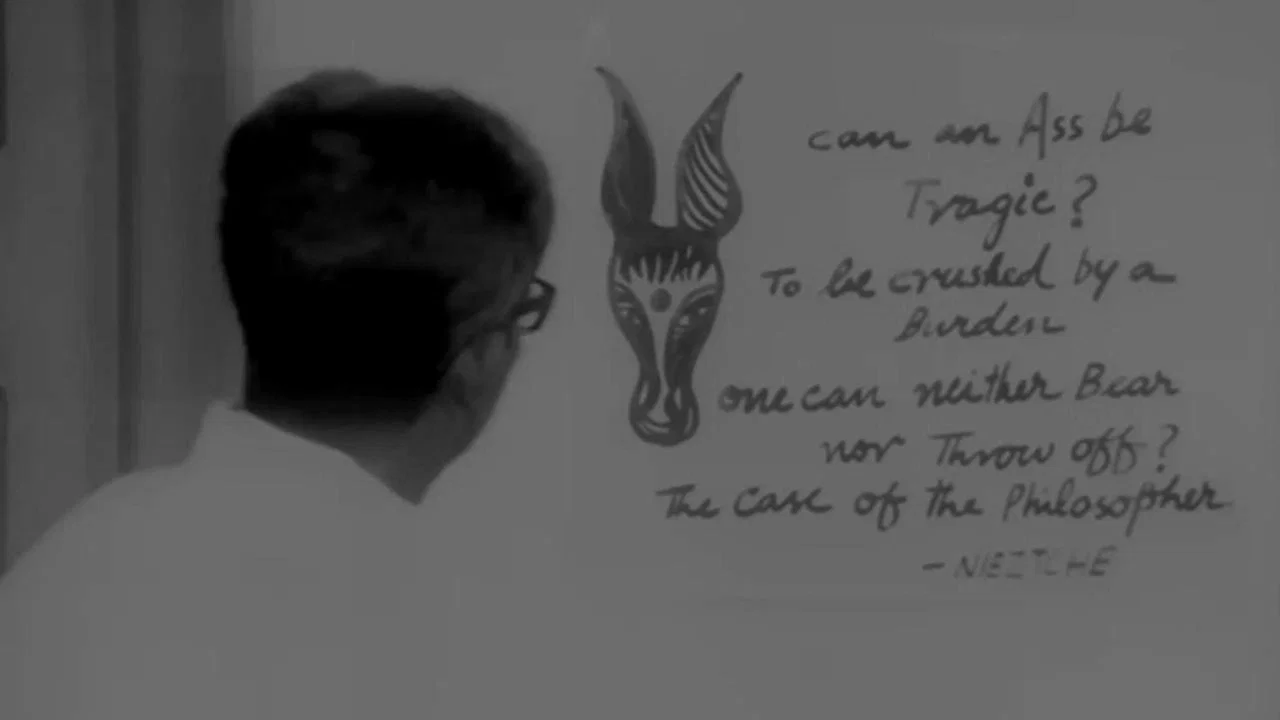 can an Ass be
Tragic?
To be crushed by a
Burden
one can neither Bear
nor Throw off?
The case of the Philosopher
- NIEZTCHE